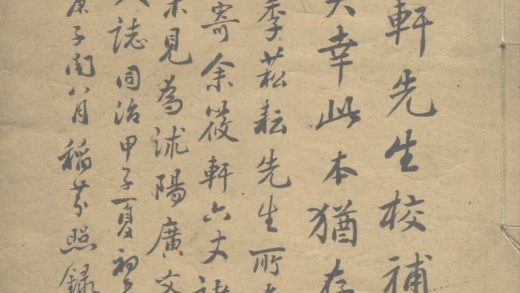 軒先生校補
幸此本猶存
季菘耘先生所
寄余筱軒六丈
未見為沭陽廣文
誌同治甲子夏初
庚子閏八月稻芬照録